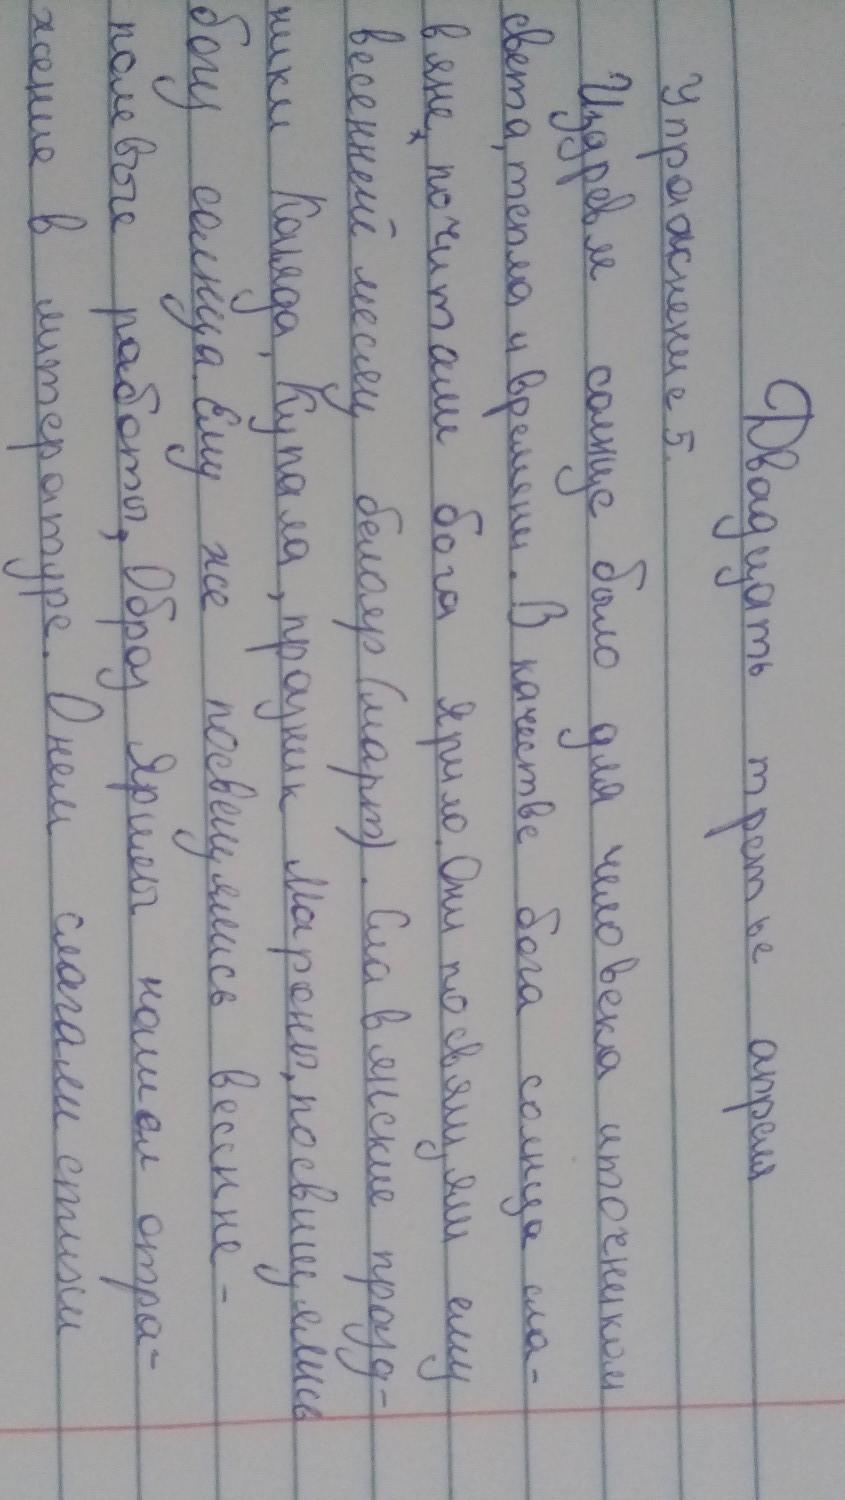 Двадцать третье апреля
Упражнение 5.
Издревле солнце было для человека иточником
света, тепла и времени. В качестве бога солнца сла-
вяне, почитали бога Ярило. Они посвящяли ему
весенней месяц белояр (март). Славянские празд-
ники Каляда, Купала, праздник Марены, посвящялись
богу солнца. Ему же посвещялись весенне-
полевые работы, Образ Ярилы нашел отра-
жение в литературе. О нем слагали стихи